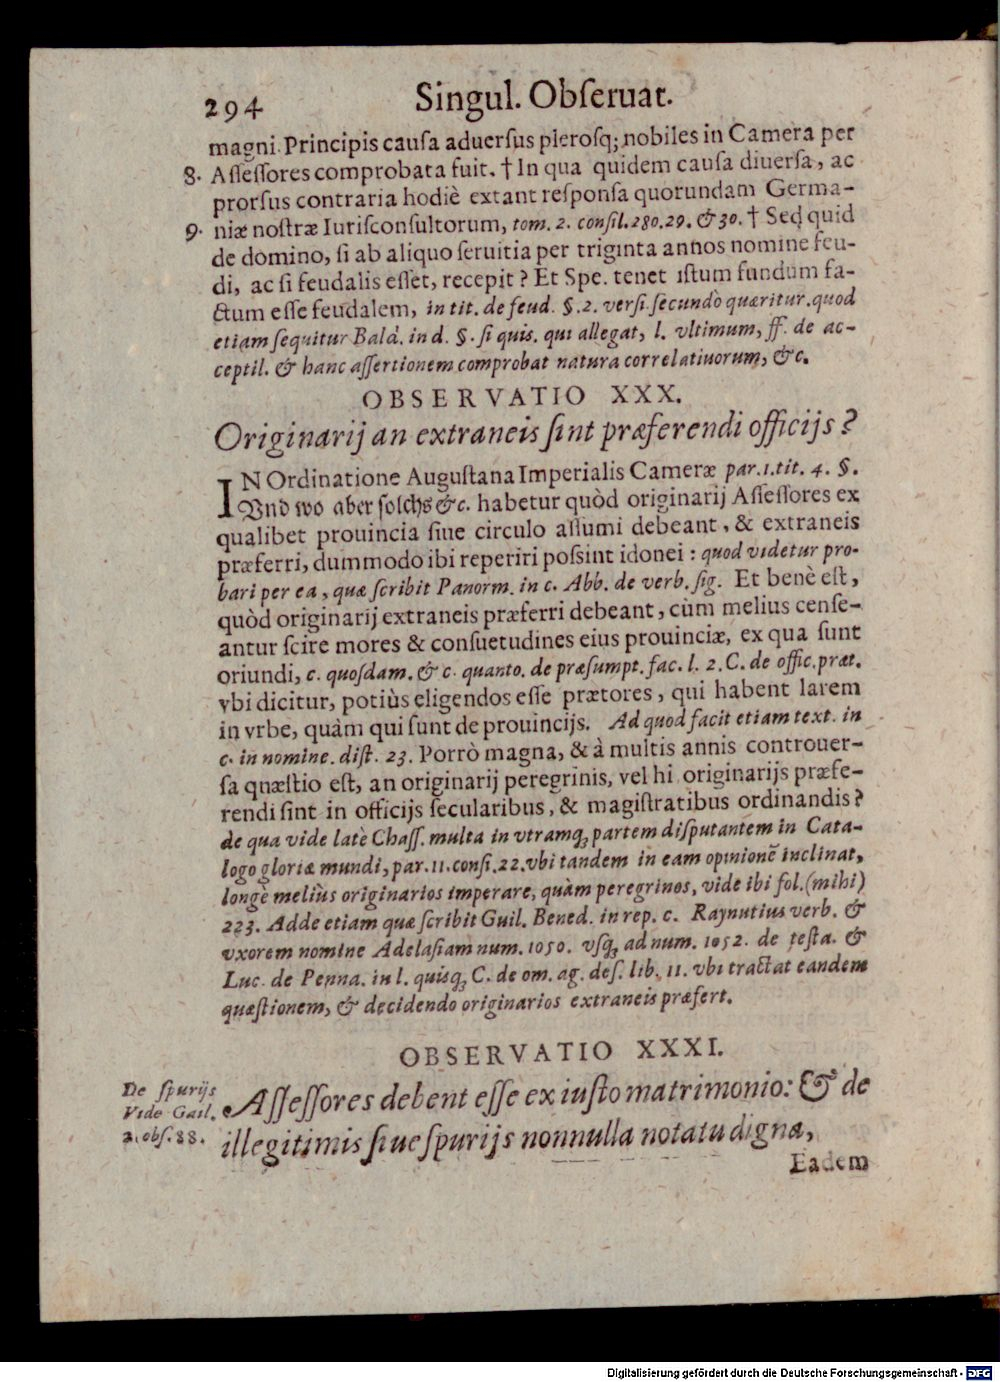 294 Singul. Obſeruat.
magni Principis cauſa aduerſus pleroſq; nobiles in Camera per
8. Aſſeſſores comprobata fuit. † In qua quidem cauſa diuerſa, ac
prorſus contraria hodiè extant reſponſa quorundam Germa-
9. niæ noſtræ Iuriſconſultorum, tom. 2. conſil. 280. 29. & 30. † Sed quid
de domino, ſi ab aliquo ſeruitia per triginta annos nomine feu-
di, ac ſi feudalis eſſet, recepit? Et Spe. tenet iſtum fundum fa-
ctum eſſe feudalem, in tit. de feud. §. 2. verſi. ſecundò quæritur. quod
etiam ſequitur Bald. in d. §. ſi quis. qui allegat, l. vltimum, ff. de ac-
ceptil. & hanc aſſertionem comprobat natura correlatiuorum, &c.
OBSERVATIO XXX.
Originarij an extraneis ſint præferendi officijs?
IN Ordinatione Auguſtana Imperialis Cameræ par. 1. tit. 4. §.
Vnd wo aber ſolchs &c. habetur quòd originarij Aſſeſſores ex
qualibet prouincia ſiue circulo aſſumi debeant, & extraneis
præferri, dummodo ibi reperiri poſsint idonei: quod videtur pro-
bari per ea, quæ ſcribit Panorm. in c. Abb. de verb. ſig. Et benè eſt,
quòd originarij extraneis præferri debeant, cùm melius cenſe-
antur ſcire mores & conſuetudines eius prouinciæ, ex qua ſunt
oriundi, c. quoſdam. & c. quanto. de præſumpt. fac. l. 2. C. de offic. præt.
vbi dicitur, potiùs eligendos eſſe prætores, qui habent larem
in vrbe, quàm qui ſunt de prouincijs. Ad quod facit etiam text. in
c. in nomine. diſt. 23. Porrò magna, & à multis annis controuer-
ſa qnæſtio eſt, an originarij peregrinis, vel hi originarijs præfe-
rendi ſint in officijs ſecularibus, & magiſtratibus ordinandis?
de qua vide latè Chaſſ. multa in vtramq; partem diſputantem in Cata-
logo gloriæ mundi, par. 11. conſi. 22. vbi tandem in eam opinionē inclinat,
longè meliùs originarios imperare, quàm peregrinos, vide ibi fol. (mihi)
223. Adde etiam quæ ſcribit Guil. Bened. in rep. c. Raynutius verb. &
vxorem nomine Adelaſiam num. 1050. vſq; ad num. 1052. de teſta. &
Luc. de Penna. in l. quisq; C. de om. ag. deſ. lib. 11. vbi tractat eandem
quæſtionem, & decidendo originarios extraneis præfert.
OBSERVATIO XXXI.
De ſpurijs
Vide Gail.
2. obſ. 88.
Aſſeſſores debent eſſe ex iuſto matrimonio: & de
illegitimis ſiue ſpurijs nonnulla notatu digna,
Eadem
Digitalisierung gefördert durch die Deutsche Forschungsgemeinschaft - DFG